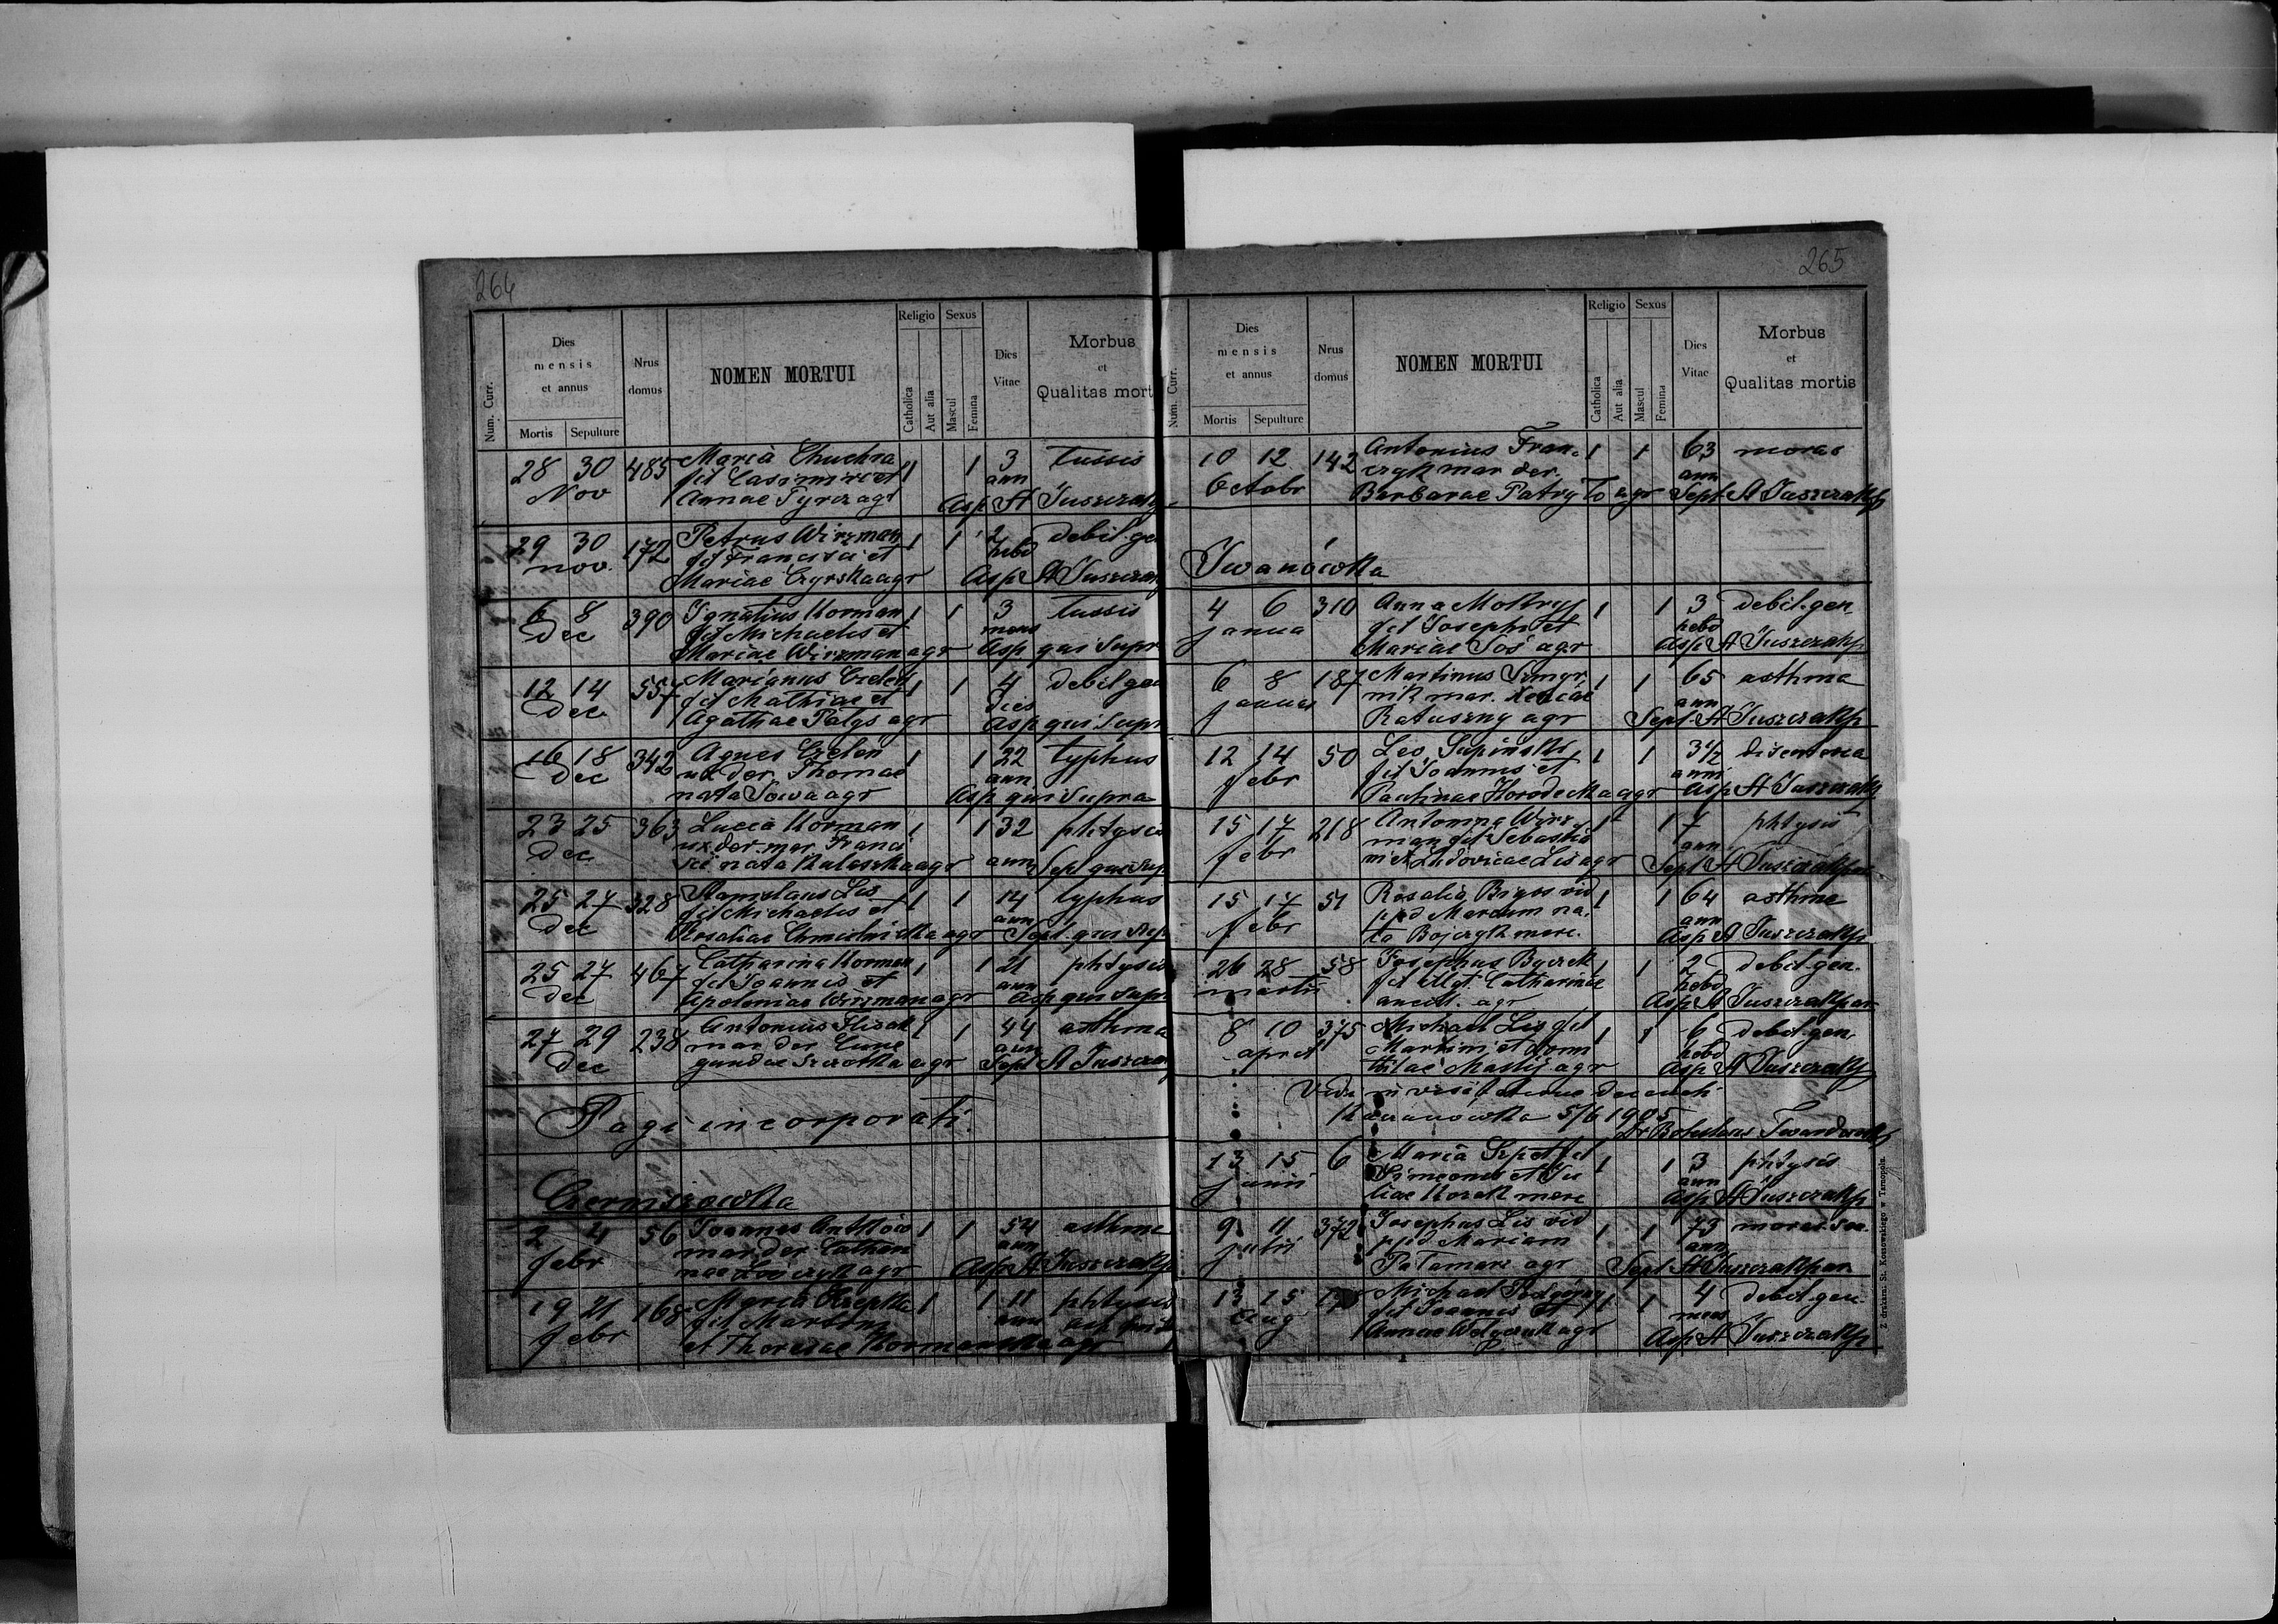 264
Num. Curr.
Dies mensis et annus
Mortis Sepulture
Nrus domus
NOMEN MORTUI
Religio
Catholica
Aut alia
Sexus
Mascul
Femina
Dies Vitae
Morbus et Qualitas mort
28 30 485 Maria Chuchra 1 1 3 tussis
Nov fil Casimiri et ann
Annae Tyrcz agr Asp A Juszczak
29 30 172 Petrus Wirzman 1 1 2 debil. ge
nov. fil Francisci et hebd
Mariae Czyrska agr Asp A Juszczak
6 8 390 Ignatius Korman 1 1 3 tussis
Dec fil Michaelis et mens
Mariae Wirzman agr Asp qui supr
12 14 557 Marianus Czeleń 1 1 4 debil gen
Dec fil Mathiae et dies
Agathae Patys agr Asp qui supr
16 18 342 Agnes Czeleń 1 1 22 typhus
Dec ux der. Thomae ann
nata Sowa agr Asp qui supra
23 25 363 Lucia Korman 1 1 32 phtysis
Dec ux der. mar. Franci
sci nata Kulaszka agr ann Sept qui sup
25 27 328 Stanislaus Lis 1 1 14 typhus
Dec fil Michaelis et ann
Rosaliae Chmielnicka agr Sept. qui sup
25 27 467 Catharina Korman 1 1 21 phtysis
Dec fil Joannis et ann
Apoloniae Wirzman agr Asp qui supr
27 29 238 Antonius Flisak 1 1 44 asthma
Dec mar der Cune ann
gundae Szczotka agr Sept A Juszczak
Pagi incorporati.
Czerniszówka
2 4 56 Joannes Antków 1 1 54 asthma
febr mar der Cathari ann
nae agr Asp A Juszczak
19 21 168 Maria Czepka 1 1 11 phtysis
febr fil Martini ann
et Theresiae Kormanska agr
265
Num. Curr.
Dies mensis et annus
Mortis Sepulture
Nrus domus
NOMEN MORTUI
Religio
Catholica
Aut alia
Sexus
Mascul
Femina
Dies Vitae
Morbus et Qualitas mortis
10 12 142 Antonius Fran- 1 1 63
Octobr czyk mar der. ann
Barbarae Patry To agr Sept A Juszczak
Iwanówka
4 6 310 Anna Mokryj 1 1 3 debil. gen
janua fil Josephi et hebd
Mariae Soś agr Asp A Juszczak
6 8 187 Martinus 1 1 65 asthma
januar nik mar. Xeniae ann
Ratuszny agr Sept. A Juszczak
12 14 50 Leo Supiński 1 1 3 1/2
febr fil Joannis et anni
Paulinae Horodecka agr Asp A Juszczak
15 17 218 Antonina Wirz 1 1 7 phtysis
febr man fil Sebastia ann
ni et Ludovicae Lis agr Sept A Juszczak
15 17 51 Rosalia Bigos vid 1 1 64 asthma
febr p/d Marcum na ann
ta Bojczyk merc. Asp A Juszczak
26 28 58 Josephus Byczek 1 1 2 debil. gen.
martii fil illgt. Catharinae hebd
ancill. agr Asp A Juszczak
8 10 375 Michael Lis fil 1 1 6 debil. gen.
april Martini et Dom hebd
agr Asp A Juszczak
Vidi in visitatione decanali
Kaczanówka 5/6 1905
Dr Boleslaus Twardowski
13 15 6 Maria Szpot fil 1 1 3 phtysis
junii Simeonis et Ju ann
liae Kozak merc Asp A Juszczak
9 11 372 Josephus Lis vid 1 1 73
julii p/d Mariam ann
Patamarz agr Sept A Juszczak
13 15 Michael Podgórny 1 1 4 debil. gen.
Aug fil Joannis et mens
Annae agr Asp A Juszczak
Z drukarni St. Kossowskiego w Tarnopolu.